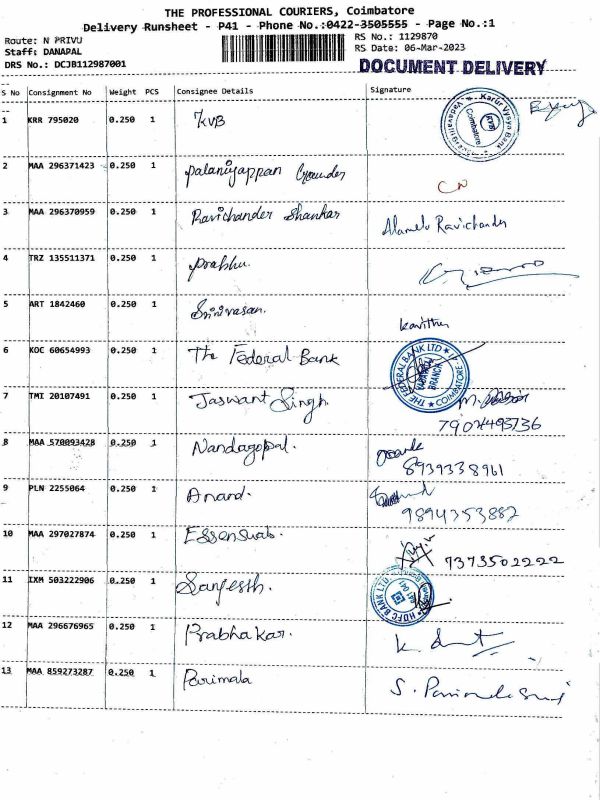 THE PROFESSIONAL COURIERS, Coimbatore
Delivery Runsheet - P41 - Phone No.:0422-3505555 - Page No.:1
Route: N PRIVU
RS No.: 1129870
Staff: DANAPAL
RS Date: 06-Mar-2023
DRS No.: DCJB112987001
DOCUMENT DELIVERY
S No Consignment No Weight PCS Consignee Details Signature
1 KRR 795020 0.250 1 KVB
Karur Vysya Bank Coimbatore KVB
2 MAA 296371423 0.250 1 Palaniyappan Gounder
3 MAA 296370959 0.250 1 Ravichander Shankar Alamelu Ravichander
4 TRZ 135511371 0.250 1 Prabhu.
5 ART 1842460 0.250 1 Srinivasan. Kavitha
6 KOC 60654993 0.250 1 The Federal Bank
THE FEDERAL BANK LTD BRANCH COIMBATORE
7 TMT 20107491 0.250 1 Jaswant Singh
7904493736
8 MAA 570093428 0.250 1 Nandagopal.
8939338961
9 PLN 2255064 0.250 1 Anand.
9894353882
10 MAA 297027874 0.250 1 7373502222
11 IXM 503222906 0.250 1
HDFC BANK LTD
12 MAA 296676965 0.250 1 Prabhakar.
13 MAA 859273287 0.250 1 Parimala